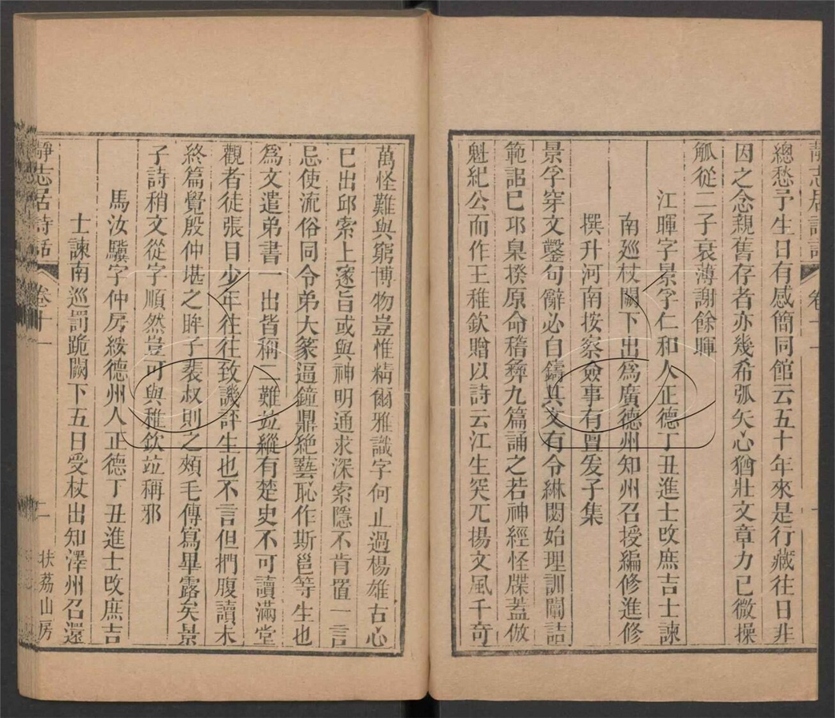 靜志居詩話 卷十一
總愁予生日有感簡同館云五十年來是行藏往日非
因之念親舊存者亦幾希弧矢心猶壯文章力已微操
觚從二子衰薄謝餘暉
江暉字景孚仁和人正德丁丑進士改庶吉士諫
南廵杖闕下出爲廣德州知州召授編修進修
撰升河南按察僉事有亶爰子集
景孚穿文鑿句辭必自鑄其文有令綝閎始理訓闈誥
範詔巳邛臬揆原命稽彝九篇誦之若神經怪牒蓋倣
魁紀公而作王稚欽贈以詩云江生突兀揚文風千奇
萬怪難與窮博物豈惟精爾雅識字何止過楊雄古心
巳出邱索上邃旨或與神明通求深索隱不肯置一言
忌使流俗同令弟大篆逼鐘鼎絕藝恥作斯邕等生也
爲文遣弟書一出皆稱二難竝縱有楚史不可讀滿堂
觀者徒張目少年往往致譏評生也不言但捫腹讀未
終篇覺殷仲堪之眸子裴叔則之頰毛傳寫畢露矣景
子詩稍文從字順然豈可與稚欽竝稱邪
馬汝驥字仲房綏德州人正德丁丑進士改庶吉
士諫南巡罰跪闕下五日受杖出知澤州召還
靜志居詩話 卷十一 二 扶荔山房